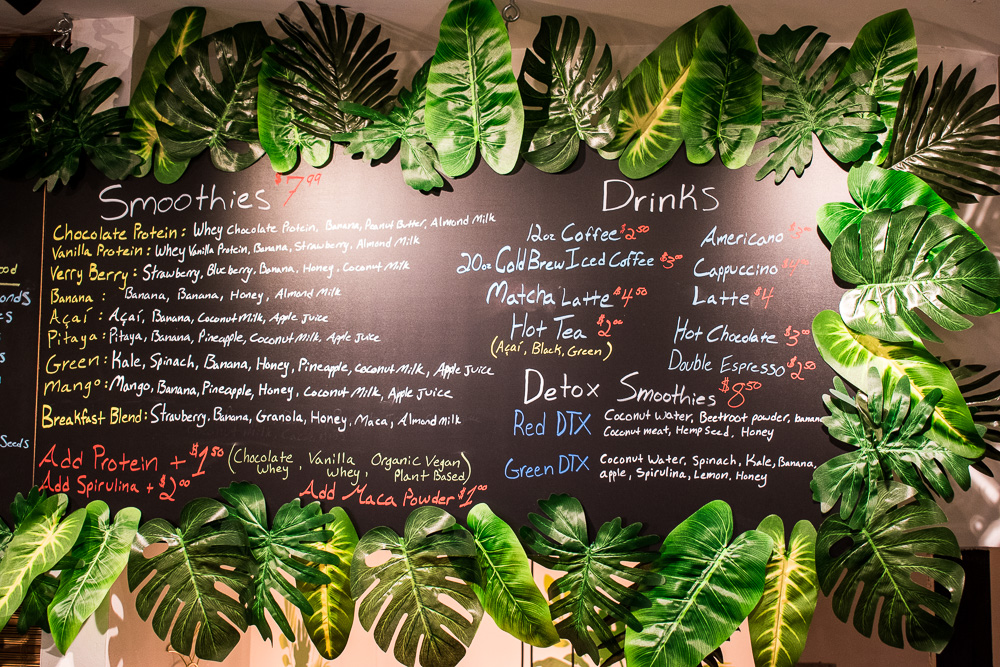 Smoothies $7.99
Chocolate Protein: Whey Chocolate Protein, Banana, Peanut Butter, Almond Milk
Vanilla Protein: Whey Vanilla Protein, Banana, Strawberry, Almond Milk
Verry Berry: Strawberry, Blueberry, Banana, Honey, Coconut Milk
Banana: Banana, Banana, Honey, Almond Milk
Açaí: Açaí, Banana, Coconut Milk, Apple Juice
Pitaya: Pitaya, Banana, Pineapple, Coconut Milk, Apple Juice
Green: Kale, Spinach, Banana, Honey, Pineapple, Coconut Milk, Apple Juice
Mango: Mango, Banana, Pineapple, Honey, Coconut Milk, Apple Juice
Breakfast Blend: Strawberry, Banana, Granola, Honey, Maca, Almond Milk
Add Protein + $1.50 (Chocolate Whey, Vanilla Whey, Organic Vegan Plant Based)
Add Spirulina + $2.00
Add Maca Powder $1.00
Drinks
12oz Coffee $2.50
20oz Cold Brew Iced Coffee $3.00
Matcha Latte $4.50
Hot Tea $2.00
(Açaí, Black, Green)
Americano
Cappuccino
Latte $4
Hot Chocolate $3.00
Double Espresso $2.50
Detox Smoothies $8.50
Red DTX Coconut Water, Beetroot powder, banana
Coconut meat, Hemp Seed, Honey
Green DTX Coconut Water, Spinach, Kale, Banana,
apple, Spirulina, Lemon, Honey
Seeds